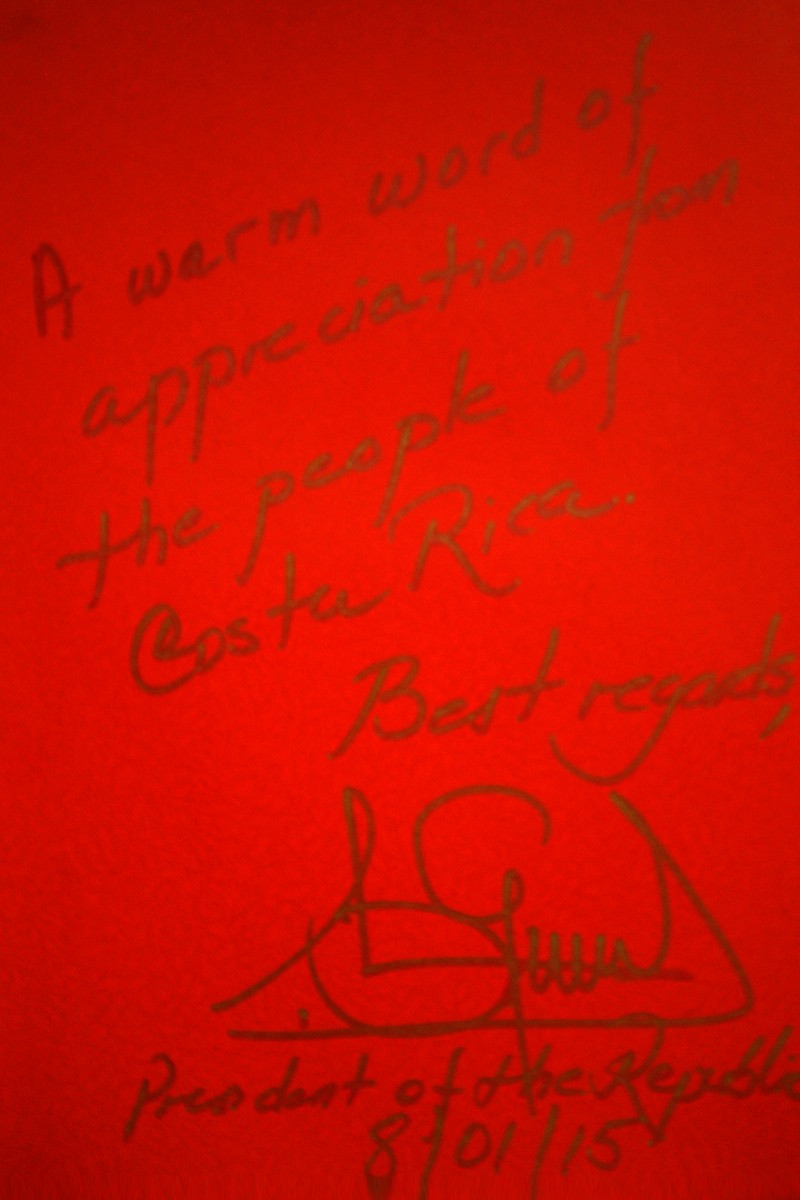 A warm word of
appreciation from
the people of
Costa Rica.
Best regards,
President of the Republic
8/01/15